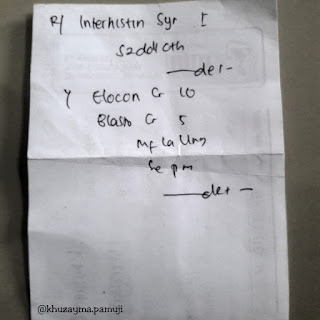 R/ Interhistin Syr I
S2ddI cth
det
Elocon Cr 10
Cr 5
Mf la Ung
Se
det
@khuzayma.pamuji